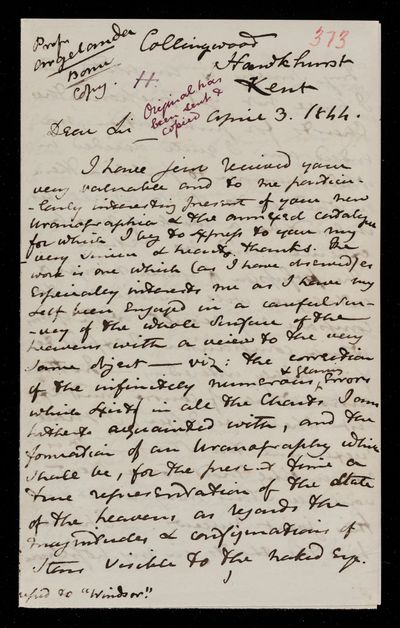 Profr
Argelander
Bonn
Copy.
Collingwood
373
Hawkhurst
Kent
H.
Original has
been sent &
copied
April 3. 1844.
Dear Sir
I have just received your
very valuable and to me particu-
-larly interesting present of your new
Uranographia & the annexed catalogue
for which I beg to express to you my
very sincere & hearty thanks. The
work is one which (as I have observed) es
Especially interests me as I have my
self been engaged in a careful sur-
-vey of the whole surface of the
heavens with a view to the very
same object — viz: the correction
of the infinitely numerous & glaring Errors
which exist in all the Charts I am
hitherto acquainted with, and the
formation of an Uranography which
shall be, for the present time a
true representation of the state
of the heavens as regards the
magnitudes & configurations of
Stars visible to the naked Eye.
to "Windsor"